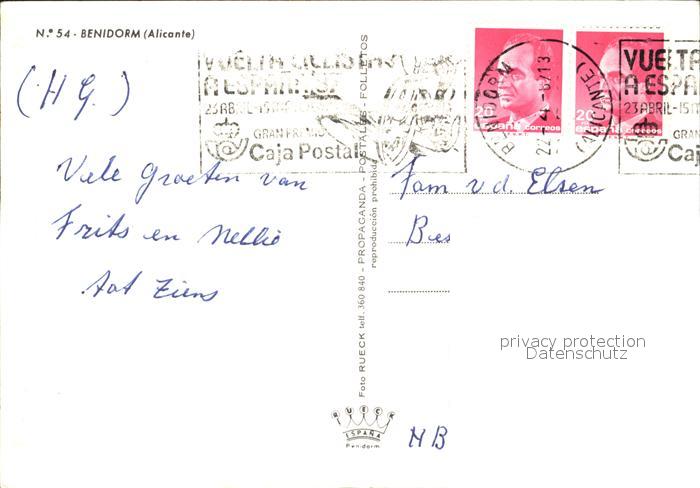 N.º 54 - BENIDORM (Alicante)
(H G.)
Vele Groeten van
Frits en Nellie
tot Ziens
VUELTA CICLISTA
A ESPAÑA
23 ABRIL-15
GRAN PREMIO
Caja Postal
20
españa correos
20
españa correos
BENIDORM
(ALICANTE)
VUELTA
A ESPA
23 ABRIL-15
GRAN PR
Caj
Foto RUECK telf. 360 840 - PROPAGANDA - POSTALES - FOLLETOS
reproducción prohibida
Fam v d. Elsen
Bes
privacy protection
Datenschutz
RUECK
ESPAÑA
Benidorm
NB